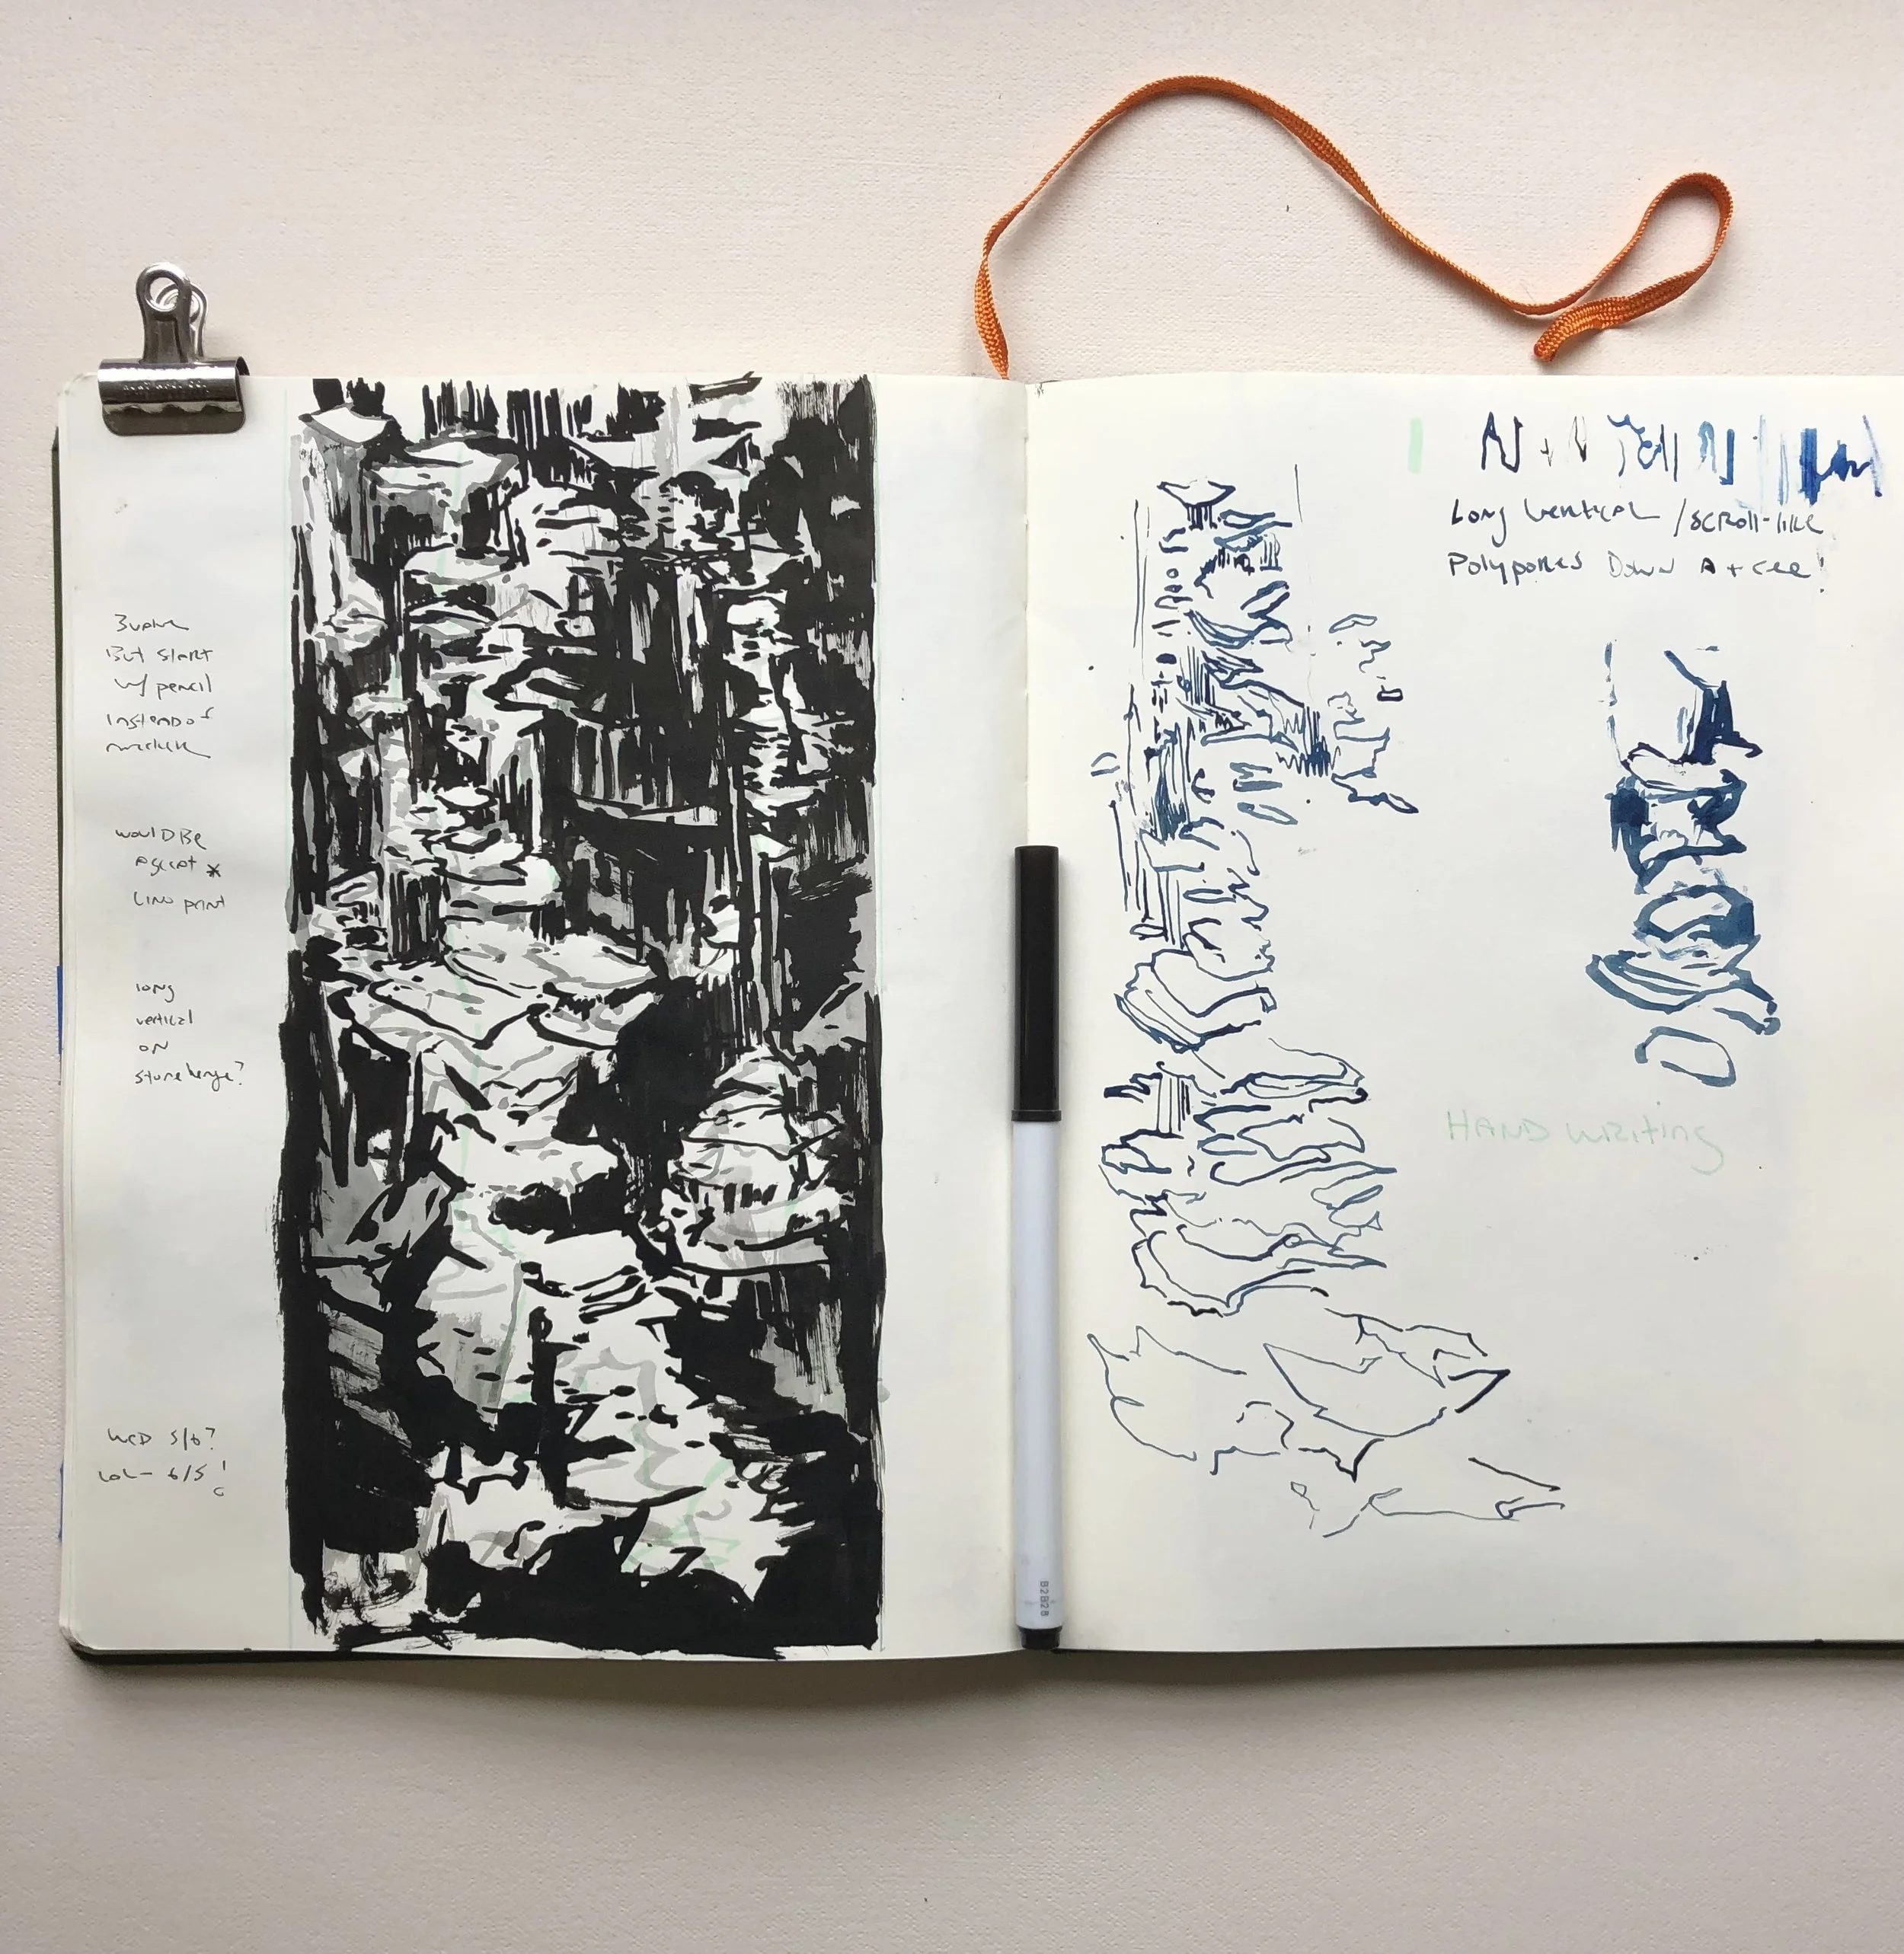 But start
w/ pencil
instead of
would Be
A great *
Lino print
long
vertical
ON
stonehenge?
WED 5/6?
LOL- 6/5!
Long Vertical /SCROLL-like
Polypores Down A tree!
HAND WRITING
B2B28